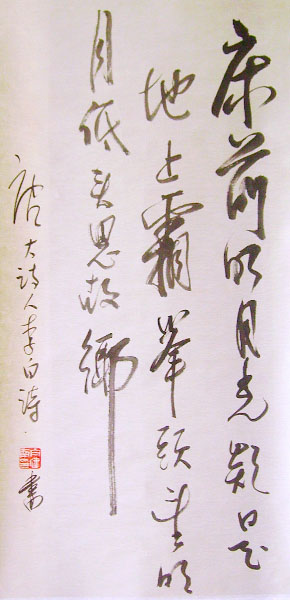 床前明月光疑是
地上霜举头望明
月低头思故乡
唐大诗人李白诗
书